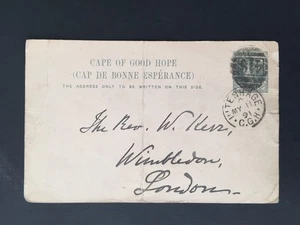 CAPE OF GOOD HOPE
(CAP DE BONNE ESPÉRANCE)
THE ADDRESS ONLY TO BE WRITTEN ON THIS SIDE.
UITENHAGE
MY 11
91
C.G.H.
The Rev. W. Kerr,
Wimbledon,
London